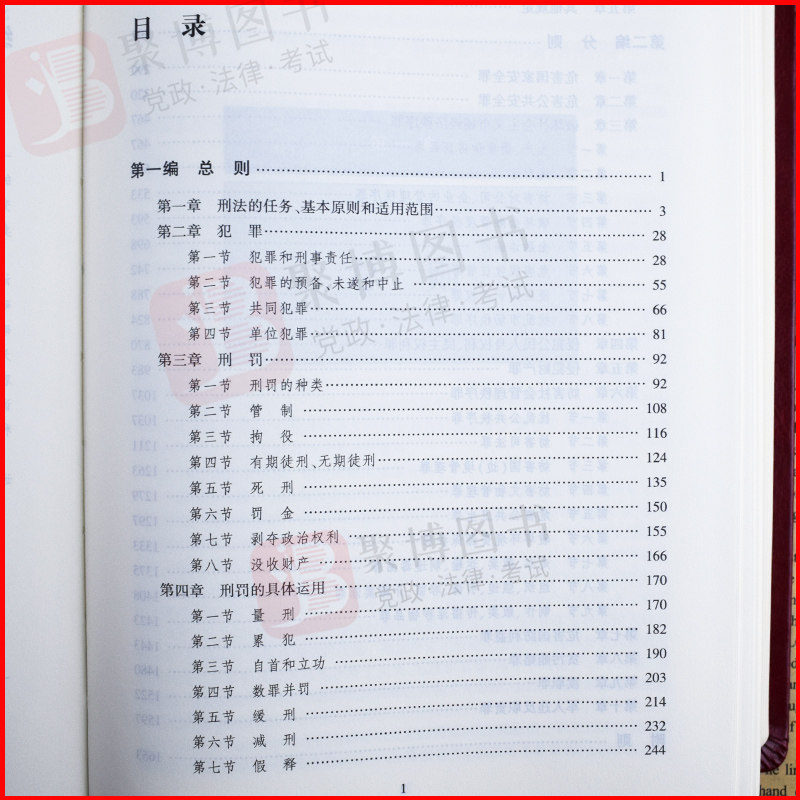 目 录
聚博图书
党政·法律·考试
第一编 总 则 1
第一章 刑法的任务、基本原则和适用范围 3
第二章 犯 罪 28
第一节 犯罪和刑事责任 28
第二节 犯罪的预备、未遂和中止 55
第三节 共同犯罪 66
第四节 单位犯罪 81
聚博图书
党政·法律·考试
第三章 刑 罚 92
第一节 刑罚的种类 92
第二节 管 制 108
第三节 拘 役 116
第四节 有期徒刑、无期徒刑 124
第五节 死 刑 135
第六节 罚 金 150
第七节 剥夺政治权利 155
第八节 没收财产 166
聚博图书
党政·法律·考试
第四章 刑罚的具体运用 170
第一节 量 刑 170
第二节 累 犯 182
第三节 自首和立功 190
第四节 数罪并罚 203
第五节 缓 刑 214
第六节 减 刑 232
第七节 假 释 244
1